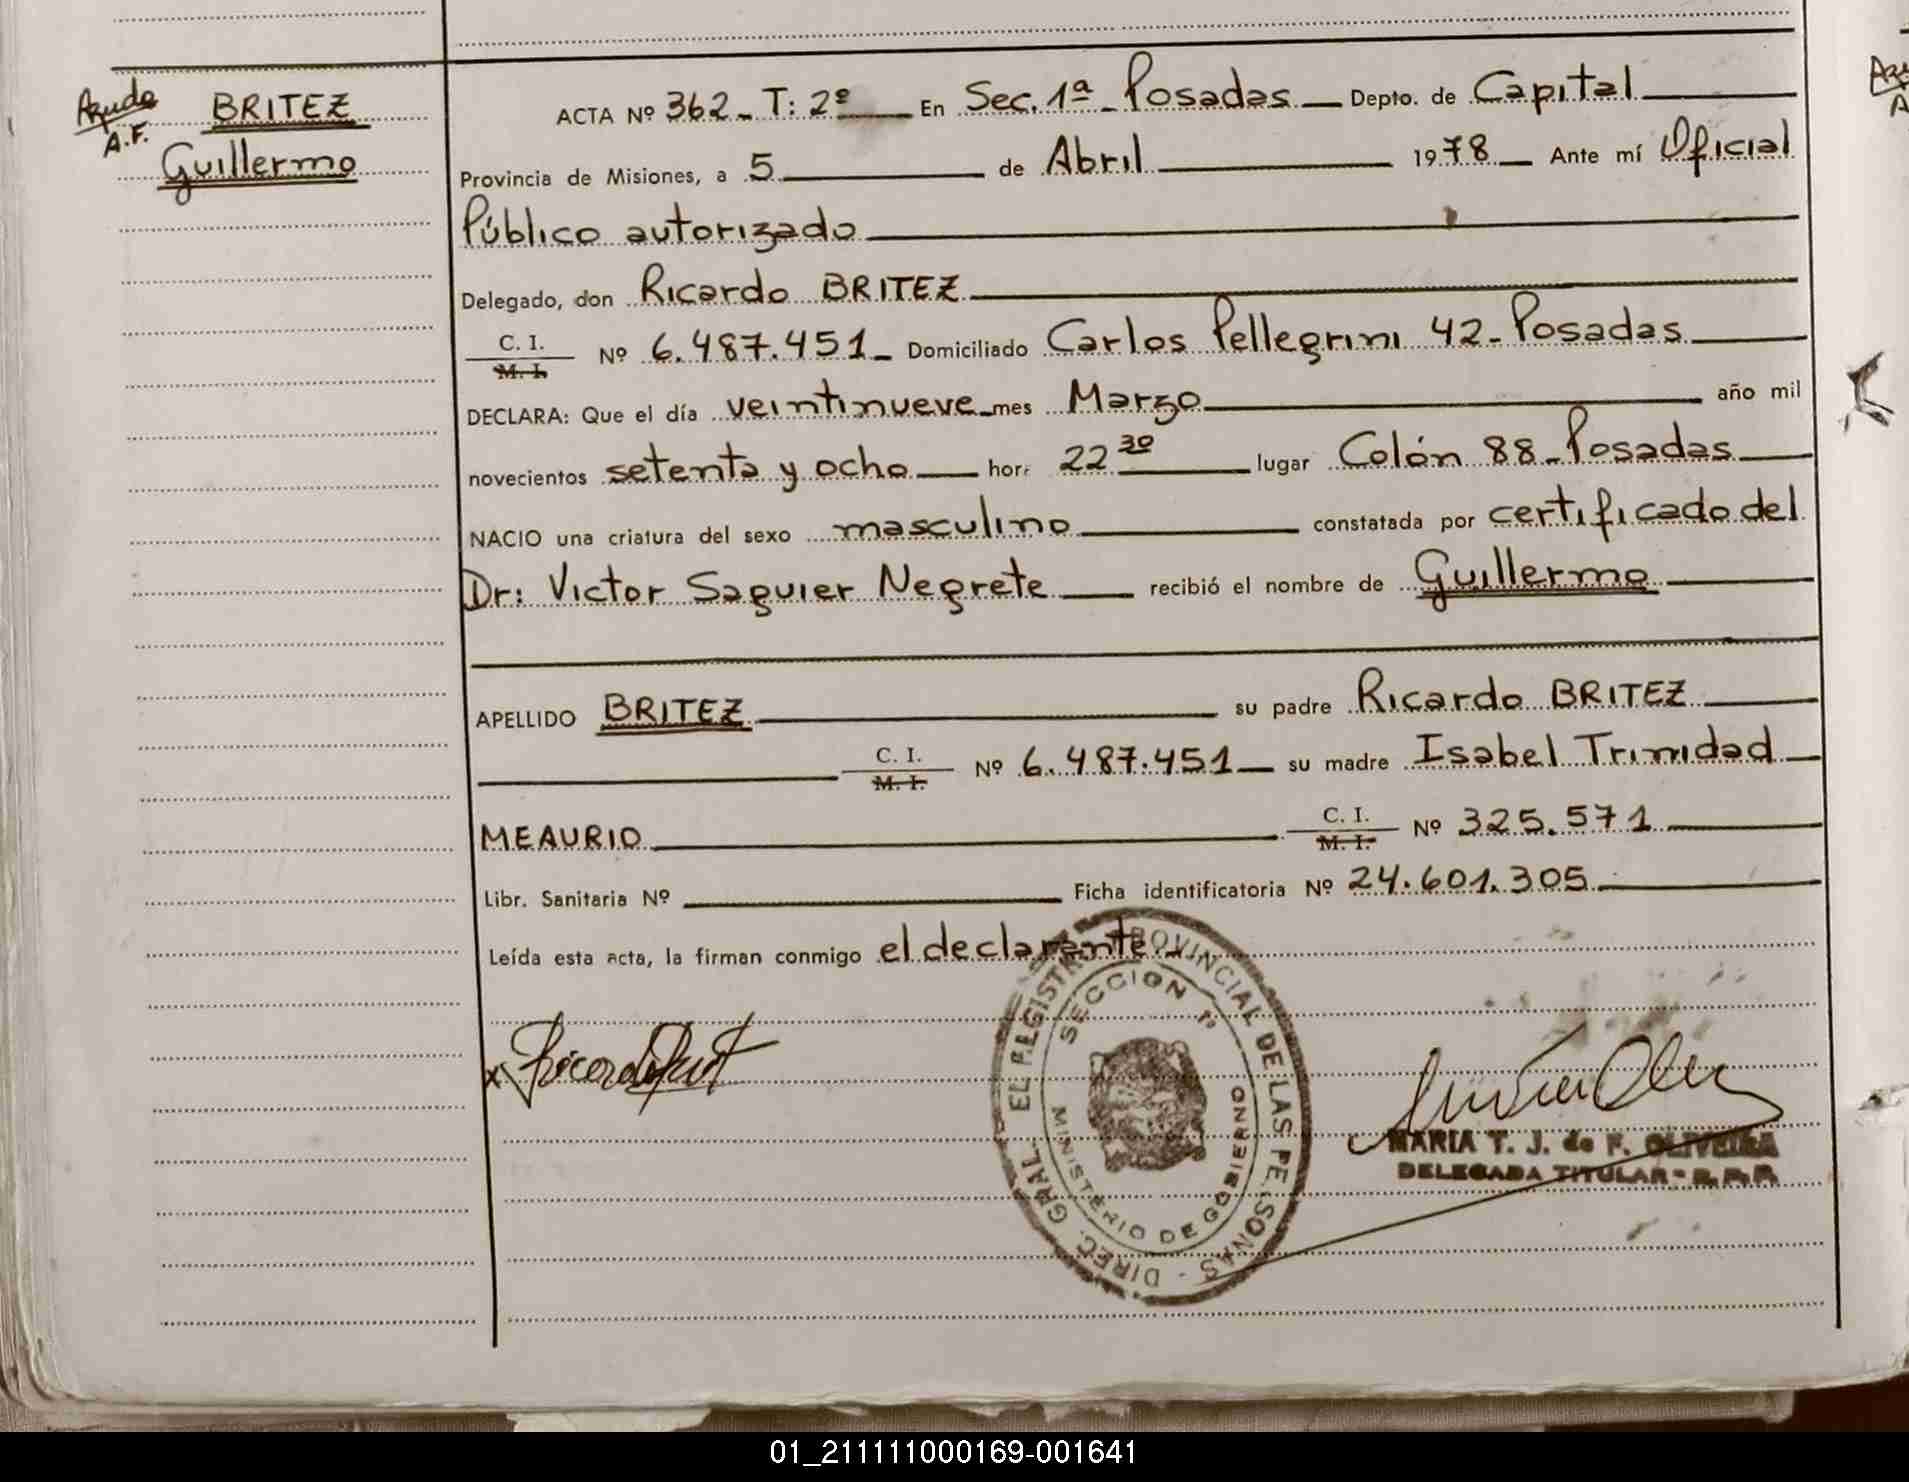 BRITEZ
A.F.
Guillermo
ACTA Nº 362 T: 2º En Sec. 1ª Posadas Depto. de Capital
Provincia de Misiones, a 5 de Abril 1978 Ante mí Oficial
Público autorizado
Delegado, don Ricardo BRITEZ
C. I.
M. I. Nº 6.487.451 Domiciliado Carlos Pellegrini 42 - Posadas
DECLARA: Que el día veintinueve mes Marzo año mil
novecientos setenta y ocho hora 22 30 lugar Colón 88 - Posadas
NACIO una criatura del sexo masculino constatada por certificado del
Dr: Victor Saguier Negrete recibió el nombre de Guillermo
APELLIDO BRITEZ su padre Ricardo BRITEZ
C. I.
M. I. Nº 6.487.451 su madre Isabel Trinidad
MEAURIO C. I.
M. I. Nº 325.571
Libr. Sanitaria Nº Ficha identificatoria Nº 24.601.305
Leída esta acta, la firman conmigo el declarante.
DIREC. GRAL. EL REGISTRO PROVINCIAL DE LAS PERSONAS
SECCION 1º
MINISTERIO DE GOBIERNO
MARIA T. J. de F. OLIVEIRA
DELEGADA TITULAR - R. P. P.
01_211111000169-001641